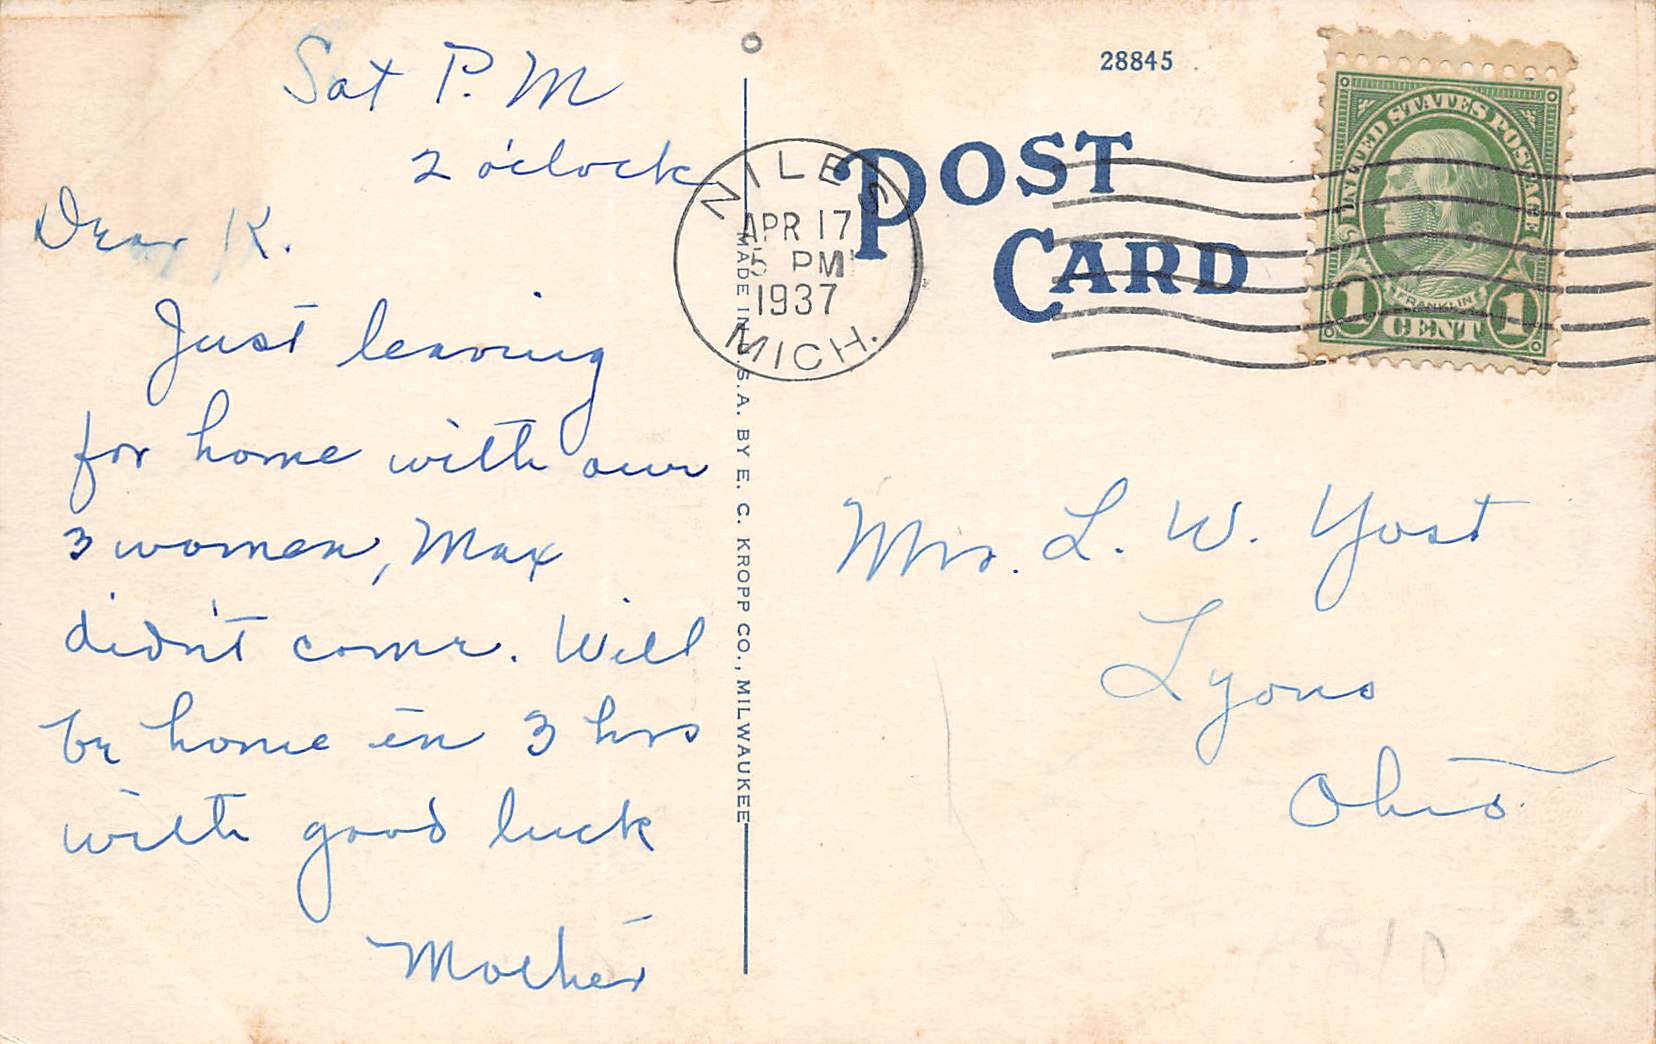 Sat P. M
2 o'clock
Dear K.
Just leaving
for home with our
3 women, Max
didn't come. Will
be home in 3 hrs
with good luck
Mother
MADE IN U.S.A. BY E. C. KROPP CO., MILWAUKEE
NILES
APR 17
5 PM
1937
MICH.
28845
POST
CARD
UNITED STATES POSTAGE
FRANKLIN
1 CENT 1
Mrs. L. W. Yost
Lyons
Ohio.
510